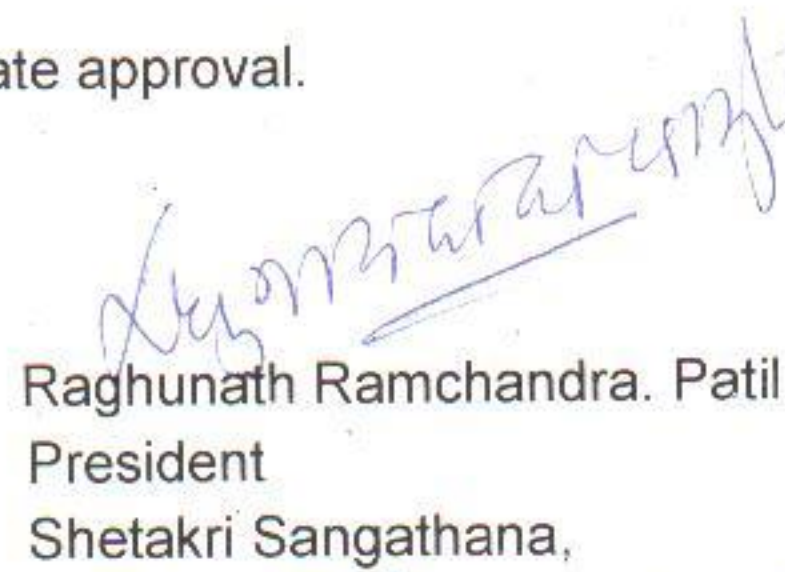 ate approval.
Raghunath Ramchandra. Patil
President
Shetakri Sangathana,